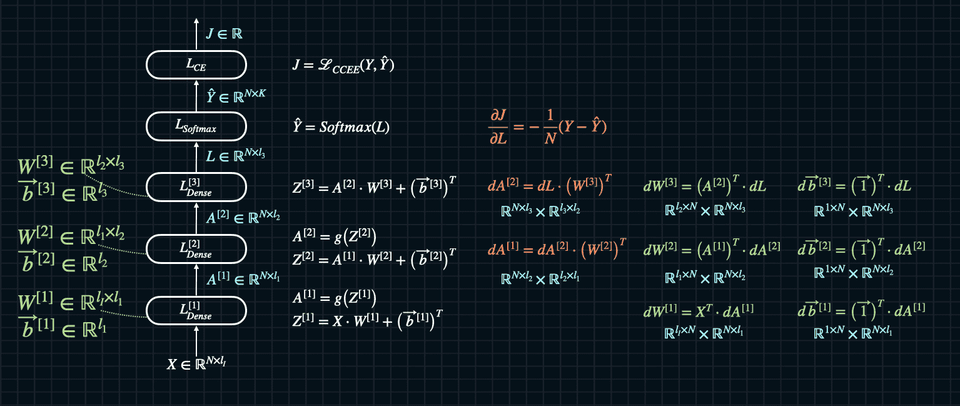 J ∈ ℝ
L_CE
J = ℒ_CCEE(Y, Ŷ)
Ŷ ∈ ℝ^{N×K}
L_Softmax
Ŷ = Softmax(L)
∂J/∂L = − 1/N (Y − Ŷ)
L ∈ ℝ^{N×l₃}
W^{[3]} ∈ ℝ^{l₂×l₃}
b⃗^{[3]} ∈ ℝ^{l₃}
L^{[3]}_Dense
Z^{[3]} = A^{[2]} · W^{[3]} + (b⃗^{[3]})^T
dA^{[2]} = dL · (W^{[3]})^T
ℝ^{N×l₃} × ℝ^{l₃×l₂}
dW^{[3]} = (A^{[2]})^T · dL
ℝ^{l₂×N} × ℝ^{N×l₃}
db⃗^{[3]} = (1⃗)^T · dL
ℝ^{1×N} × ℝ^{N×l₃}
A^{[2]} ∈ ℝ^{N×l₂}
W^{[2]} ∈ ℝ^{l₁×l₂}
b⃗^{[2]} ∈ ℝ^{l₂}
L^{[2]}_Dense
A^{[2]} = g(Z^{[2]})
Z^{[2]} = A^{[1]} · W^{[2]} + (b⃗^{[2]})^T
dA^{[1]} = dA^{[2]} · (W^{[2]})^T
ℝ^{N×l₂} × ℝ^{l₂×l₁}
dW^{[2]} = (A^{[1]})^T · dA^{[2]}
ℝ^{l₁×N} × ℝ^{N×l₂}
db⃗^{[2]} = (1⃗)^T · dA^{[2]}
ℝ^{1×N} × ℝ^{N×l₂}
A^{[1]} ∈ ℝ^{N×l₁}
W^{[1]} ∈ ℝ^{l_I×l₁}
b⃗^{[1]} ∈ ℝ^{l₁}
L^{[1]}_Dense
A^{[1]} = g(Z^{[1]})
Z^{[1]} = X · W^{[1]} + (b⃗^{[1]})^T
dW^{[1]} = X^T · dA^{[1]}
ℝ^{l_I×N} × ℝ^{N×l₁}
db⃗^{[1]} = (1⃗)^T · dA^{[1]}
ℝ^{1×N} × ℝ^{N×l₁}
X ∈ ℝ^{N×l_I}